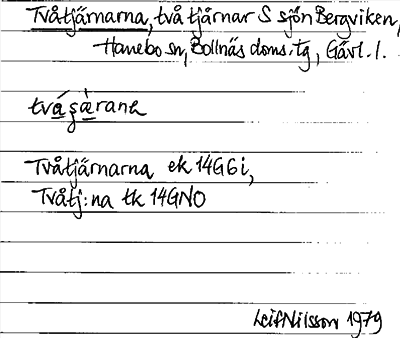 Tvåtjärnarna, två tjärnar S sjön Bergviken,
Hanebo sn, Bollnäs doms.tg, Gävl. l.
Tvåtjärnarna ek 14G6i,
Tvåtj:na tk 14GNO
Leif Nilsson 1979